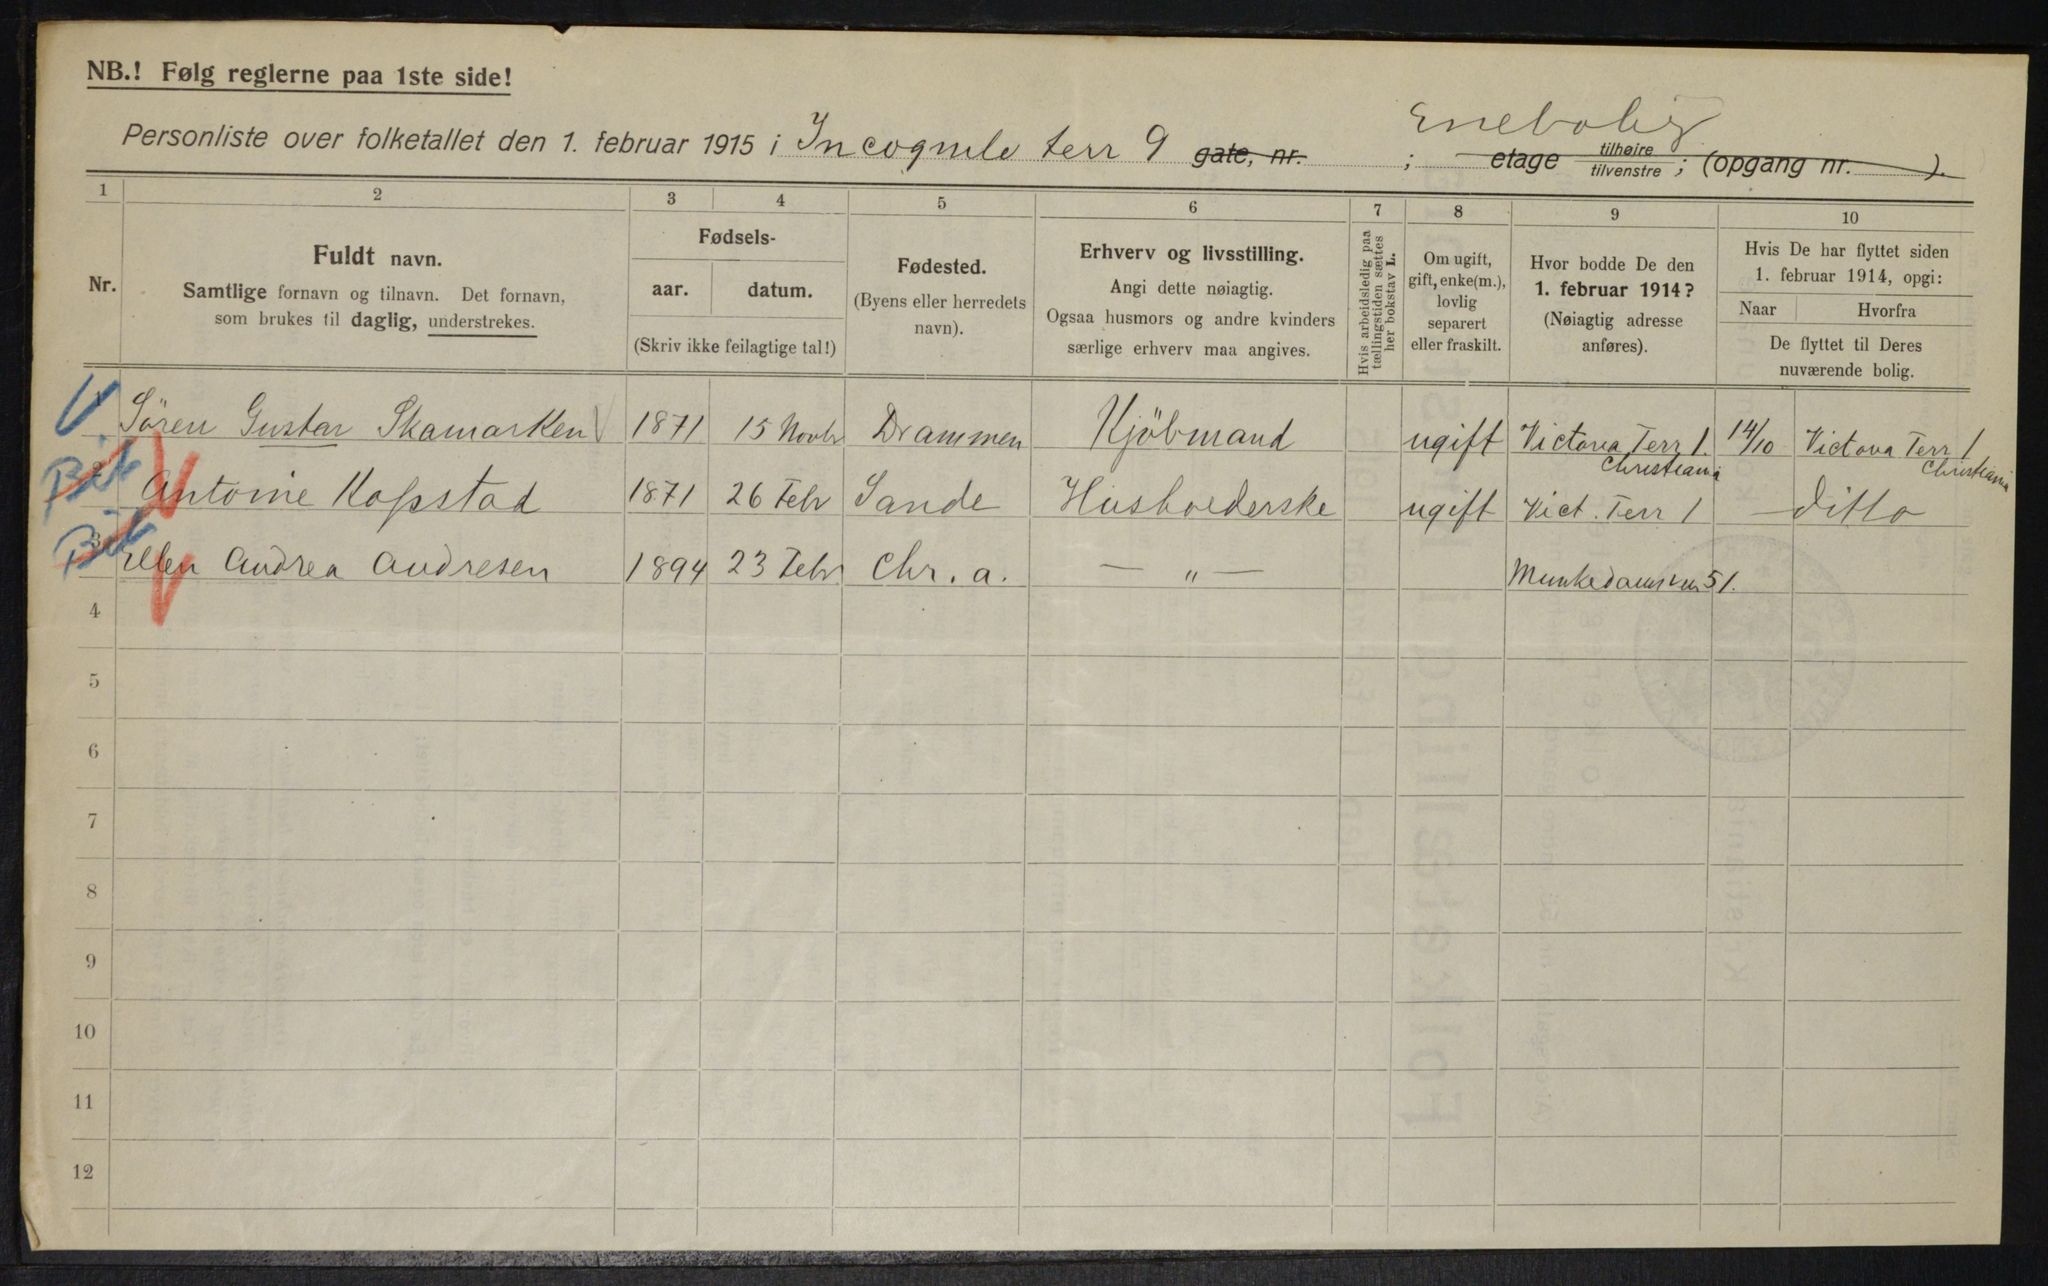 NB.! Følg reglerne paa 1ste side!
Enebolig
Personliste over folketallet den 1. februar 1915 i Incognito terr 9 gate, nr. ; etage tilhøire tilvenstre ; (opgang nr. ).
1 2 3 4 5 6 7 8 9 10
Nr.
Fuldt navn.
Samtlige fornavn og tilnavn. Det fornavn,
som brukes til daglig, understrekes.
Fødsels-
aar. datum.
(Skriv ikke feilagtige tal!)
Fødested.
(Byens eller herredets
navn).
Erhverv og livsstilling.
Angi dette nøiagtig.
Ogsaa husmors og andre kvinders
særlige erhverv maa angives.
Hvis arbeidsledig paa
tællingstiden sættes
her bokstav L.
Om ugift,
gift, enke(m.),
lovlig
separert
eller fraskilt.
Hvor bodde De den
1. februar 1914?
(Nøiagtig adresse
anføres).
Hvis De har flyttet siden
1. februar 1914, opgi:
Naar Hvorfra
De flyttet til Deres
nuværende bolig.
Sören Gustav Skamarken 1871 15 Novbr Drammen Kjöbmand ugift Victoria Terr 1. Christiania 14/10 Victoria Terr 1 Christiania
2 Antonie Kopstad 1871 26 Febr Sande Husholderske ugift Vict. Terr 1 ditto
3 Ellen Andrea Andresen 1894 23 Febr Chr.a. — „ — Munkedamsvn 51.
4
5
6
7
8
9
10
11
12